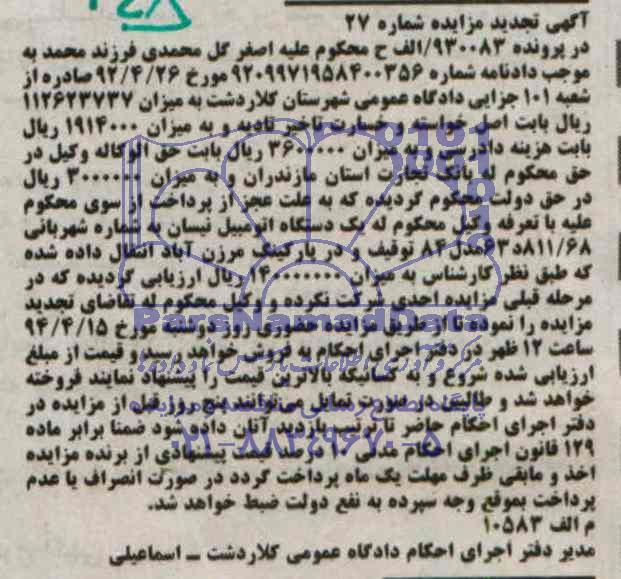 آگهی تجدید مزایده شماره ۲۷
در پرونده ۹۳۰۰۸۳/الف ح محکوم علیه اصغر گل محمدی فرزند محمد به
موجب دادنامه شماره ۹۲۰۹۹۷۱۹۵۸۴۰۰۳۵۶ مورخ ۹۲/۴/۲۶ صادره از
شعبه ۱۰۱ جزایی دادگاه عمومی شهرستان کلاردشت به میزان ۱۱۲۶۲۳۷۳۷
ریال بابت اصل خواسته و خسارت تاخیر تادیه و به میزان ۱۹۱۴۰۰۰ ریال
بابت هزینه دادرسی و به میزان ۳۶۰۰۰۰۰ ریال بابت حق الوکاله وکیل در
حق محکوم له بانک تجارت استان مازندران و به میزان ۳۰۰۰۰۰۰ ریال
در حق دولت محکوم گردیده که به علت عجز از پرداخت از سوی محکوم
علیه با تعرفه وکیل محکوم له یک دستگاه اتومبیل نیسان به شماره شهربانی
۸۱۱/۶۸د۶۳ مدل ۸۴ توقیف و در پارکینگ مرزن آباد انتقال داده شده
که طبق نظر کارشناس به میزان ریال ارزیابی گردیده که در
مرحله قبلی مزایده احدی شرکت نکرده و وکیل محکوم له تقاضای تجدید
مزایده را نموده تا از طریق مزایده حضوری روز دوشنبه مورخ ۹۴/۴/۱۵
ساعت ۱۲ ظهر در دفتر اجرای احکام به فروش خواهد رسید و قیمت از مبلغ
ارزیابی شده شروع و به کسانیکه بالاترین قیمت را پیشنهاد نمایند فروخته
خواهد شد و طالبین در صورت تمایل می‌توانند پنج روز قبل از مزایده در
دفتر اجرای احکام حاضر تا ترتیب بازدید آنان داده شود ضمنا برابر ماده
۱۲۹ قانون اجرای احکام مدنی ۱۰ درصد قیمت پیشنهادی از برنده مزایده
اخذ و مابقی ظرف مهلت یک ماه پرداخت گردد در صورت انصراف یا عدم
پرداخت بموقع وجه سپرده به نفع دولت ضبط خواهد شد.
م الف ۱۰۵۸۳
مدیر دفتر اجرای احکام دادگاه عمومی کلاردشت ــ اسماعیلی
ParsNamadData
مرکز فرآوری اطلاعات پارس نماد داده ها
پایگاه اطلاع رسانی مناقصه و مزایده
۰۲۱-۸۸۳۴۹۶۷۰-۵